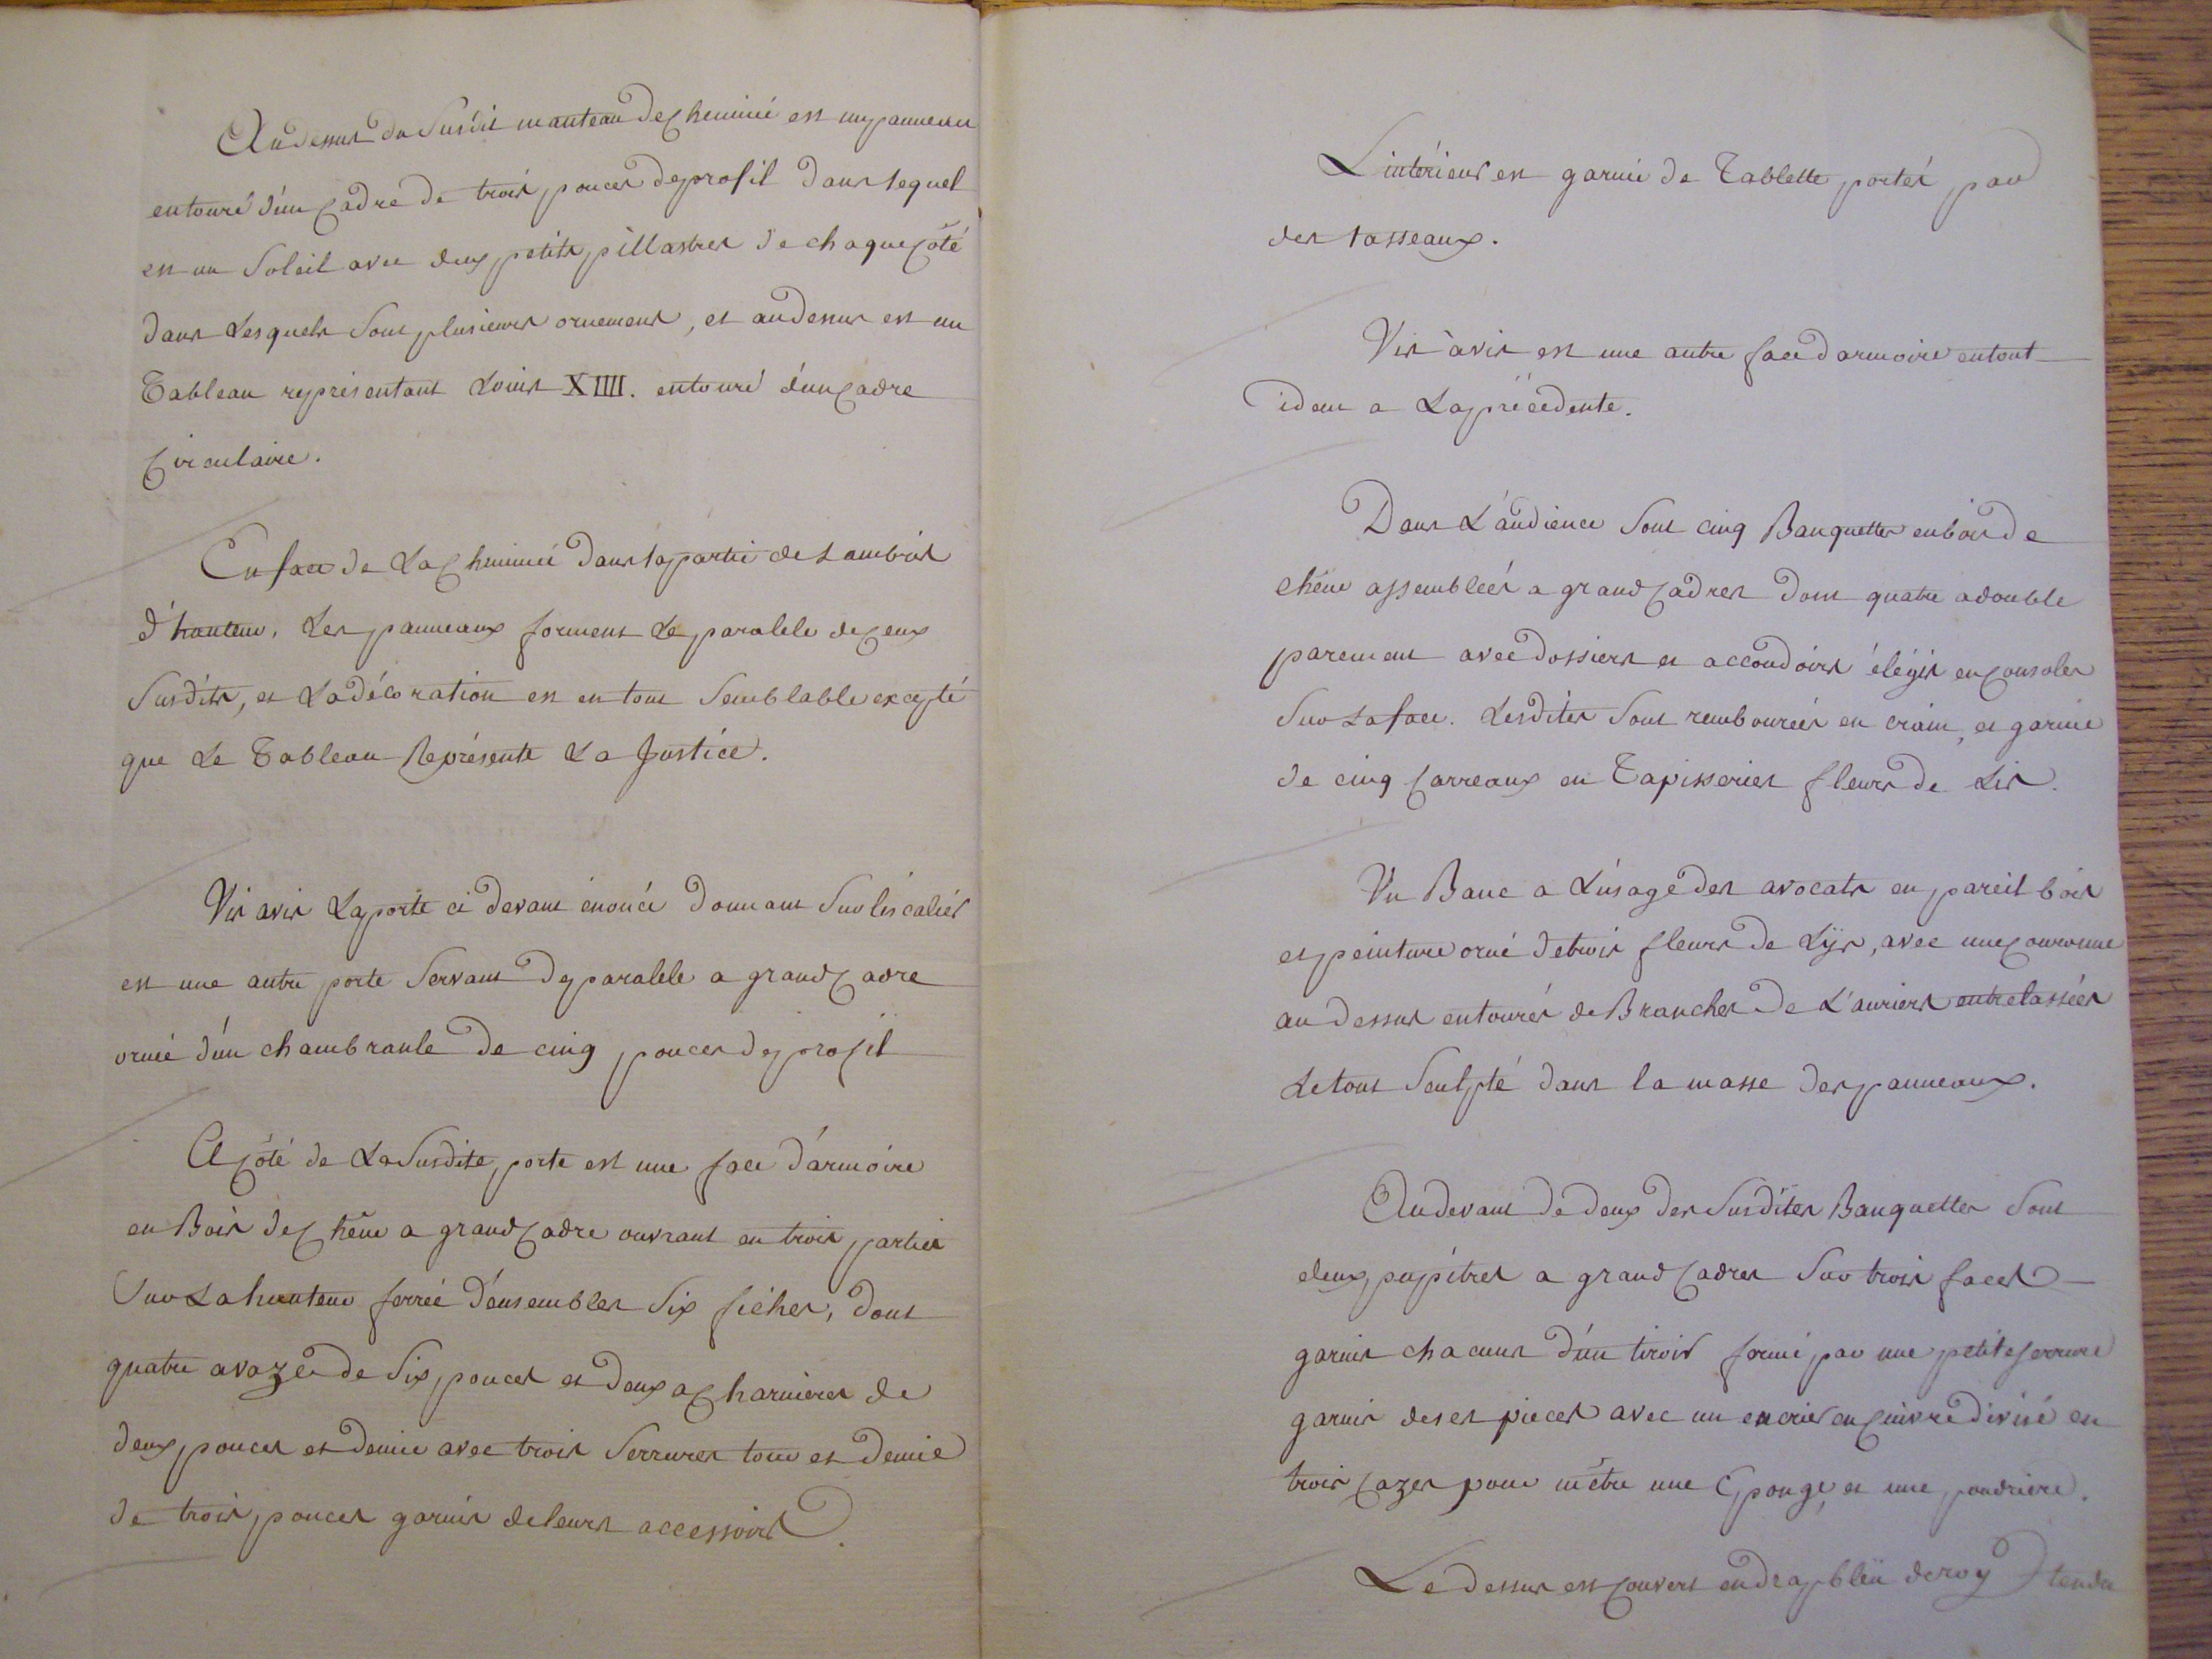 Audessus du Susdit manteau de Cheminé est un panneau
entouré d'un Cadre de trois pouces de profil dans lequel
est un Soleil avec deux petits pillastres de chaque Côté
dans Lesquels Sont plusieurs ornements, et audessus est un
Tableau représentant Louis XIIII. entouré d'un Cadre
Circulaire.
En face de La Cheminée dans la partie de Lambris
d'hauteur, Les panneaux forment Le paralele de Ceux
Susdits, et La décoration est en tout Semblable excepté
que Le Tableau Représente La Justice.
Vis avis La porte ci devant énoncé donnant Sur l'éscaliér
est une autre porte Servant de paralele a grand Cadre
orné d'un chambranle de cinq pouces de profil
A Côté de La Susdite porte est une face d'armoire
en Bois de Chêne a grand Cadre ouvrant en trois parties
Sur La hauteur ferrée d'ensembles Six fiches, dont
quatre avaze de Six pouces et deux a Charnieres de
deux pouces et demie avec trois Serrures tour et demie
de trois pouces garnis de leurs accessoirs.
L'intérieur est garnie de Tablette portés par
des tasseaux.
Vis àvis est une autre face d'armoire en tout
idem a La précédente.
Dans L'audience Sont cinq Banquettes en bois de
chêne assembleés a grand Cadres dont quatre a double
parement avec dossiers et accoudoirs élégis en Consoles
Sur La face. Lesdites Sont rembourées en crain, et garnie
de cinq Carreaux en Tapisseries fleurs de Lis.
Un Banc a L'usage des avocats en pareil bois
et peinture orné de trois fleurs de Lÿs, avec une Couronne
au dessus entourés de Branches de L'auriers entrelassées
Le tout Sculpté dans la masse des panneaux.
Audevant de deux des Susdites Banquettes Sont
deux pupitres a grand Cadres Sur trois faces
garnis chacuns d'un tiroir fermé par une petite serrure
garnis de ses pieces avec un encrier en Cuivre divisé en
trois Cazes pour métre une Eponge, et une poudriere.
Le dessus est Couvert en drap bleu de roy tendu